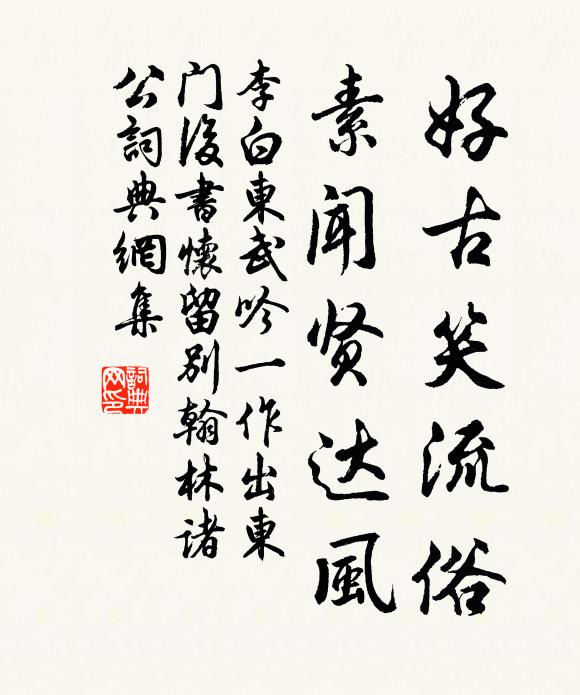 好古笑流俗
素闻贤达風
李白東武吟一作出東
门後書懷留別翰林諸
公詞典網集
詞典
网印